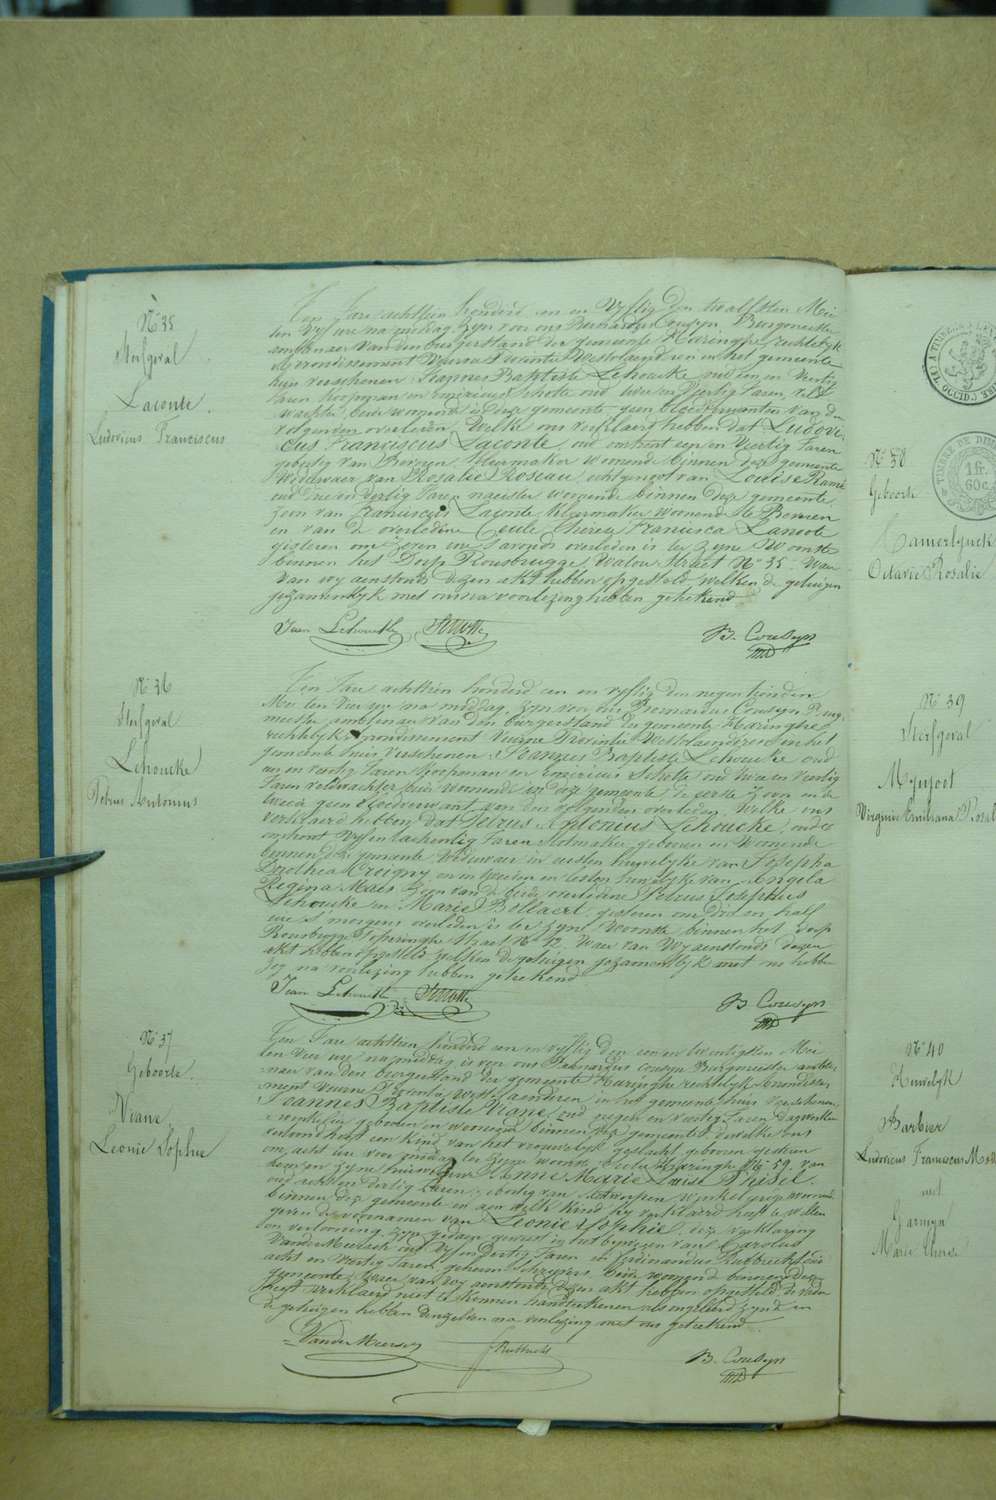 N° 35
Sterfgeval
Laconte.
Ludovicus Franciscus
Ten Jare achttien honderd een en vyftig den twaelfsten Mei
ten vyf ure na middag zyn voor ons Bernardus Cousyn Burgmeester
ambtenaer van den burgerstand der gemeente Haringhe, rechtelyk
Arrondissement Veurne Provintie Westvlaenderen in het gemeente
huis verschenen Joannes Baptiste Lehoucke oud een en veertig
Jaren koopman en Schotte oud twee en veertig Jaren, veld
wachter, beide woonende in deze gemeente geen bloedverwanten van den
volgenden overleden, Welke ons verklaerd hebben dat Ludovi-
cus Franciscus Laconte, oud omtrent een en veertig Jaren
geboortig van Beveren, kleermaker woonende binnen deze gemeente
Weduwaer van Rosalie Roseau, echtgenoot van Louise Ramé
oud drie en veertig Jaren naeister woonende binnen deze gemeente
zoon van Franciscus Laconte, kleermaker woonende te Beveren
en van de overledene Cecile Theresia Francisca Lanoote
gisteren om zeven ure s'avonds overleden is ter zyne Woonste
binnen het Dorp Rousbrugge, Walou Straet N° 35. Waer
van wy aenstonds dezen akt hebben opgesteld welken de getuigen
gezamentlyk met ons na voorlezing hebben geteekend
Jean Lehoucke Schotte B. Cousyn
N° 36
Sterfgeval
Lehoucke
Petrus Antonius
Ten Jare achttien honderd een en vyftig den negentienden
Mei ten vier ure na middag, zyn voor ons Bernardus Cousyn Burg-
meester ambtenaer van den burgerstand der gemeente Haringhe
rechtelyk Arrondissement Veurne Provintie Westvlaenderen in het
gemeente huis verschenen Joannes Baptiste Lehoucke oud
een en veertig Jaren koopman en Schotte oud twee en veertig
Jaren veldwachter, beide woonende in deze gemeente de eerste zoon en de
tweede geen bloedverwant van den volgenden overleden, Welke ons
verklaerd hebben dat Petrus Antonius Lehoucke, oud
omtrent vyf en tachentig Jaren Slotmaker geboren en Woonende
binnen deze gemeente Weduwaer in eersten huwelyke van Josepha
Dorothea Creugny en in tweeden en lesten huwelyke van Angela
Regina Maes zoon van de beide overledene Petrus Josephus
Lehoucke en Marie Bollaert gisteren om Drie en half
ure s'morgens overleden is ter zyne Woonste binnen het dorp
Rousbrugge Poperinghe Straet N° 12. Waer van Wy aenstonds dezen
akt hebben opgesteld welken de getuigen gezamentlyk met ons hebben
na voorlezing hebben geteekend
Jean Lehoucke Schotte B Cousyn
N° 37
Geboorte.
Viane
Leonie Sophie
Ten Jare achttien honderd een en vyftig den een en twintigsten Mei
ten vier ure namiddag is voor ons Bernardus Cousyn Burgmeester ambte-
naer van den burgerstand der gemeente Haringhe rechtelyk Arrondisse-
ment Veurne Provintie Westvlaenderen in het gemeente huis verschenen
Joannes Baptiste Viane, oud negen en veertig Jaren Dagwerker
geboren en woonende binnen deze gemeente, dewelke ons
vertoond heeft een kind van het vrouwelyk geslacht geboren gisteren
om acht ure voor middag ter zyne woonste Haringhe N° 59. van
hem en zyne huisvrouw Anne Marie Luise Thisel.
oud acht en dertig Jaren geboortig van Antwerpen winkelierster woonende
binnen deze gemeente en aen welk kind hy verklaerd heeft te willen
geven de voornamen van Leonie Sophie. deze verklaring
en vertooning zyn gedaen geweest in het bywezen van Carolus
Vandermeersch oud vyf en dertig Jaren en Ferdinandus Rubbrecht oud
acht en veertig Jaren, geheim schryvers beide woonende binnen deze
gemeente. Waer van wy aenstonds dezen akt hebben opgesteld de vader
heeft verklaerd niet te kunnen handteekenen als ongeleerd zynde en
de getuigen hebben denzelven na voorlezing met ons geteekend.
VanderMeersch Rubbrecht B. Cousyn
N° 38
Geboorte
Camerlynck
Octavie Rosalie
TIMBRE DE DIM
1 fr.
60 c.
N° 39
Sterfgeval
Virginie Emiliana Rosal
N° 40
Huwelyk
Barbier
Ludovicus Franciscus
met
Garmyn
Marie Therese